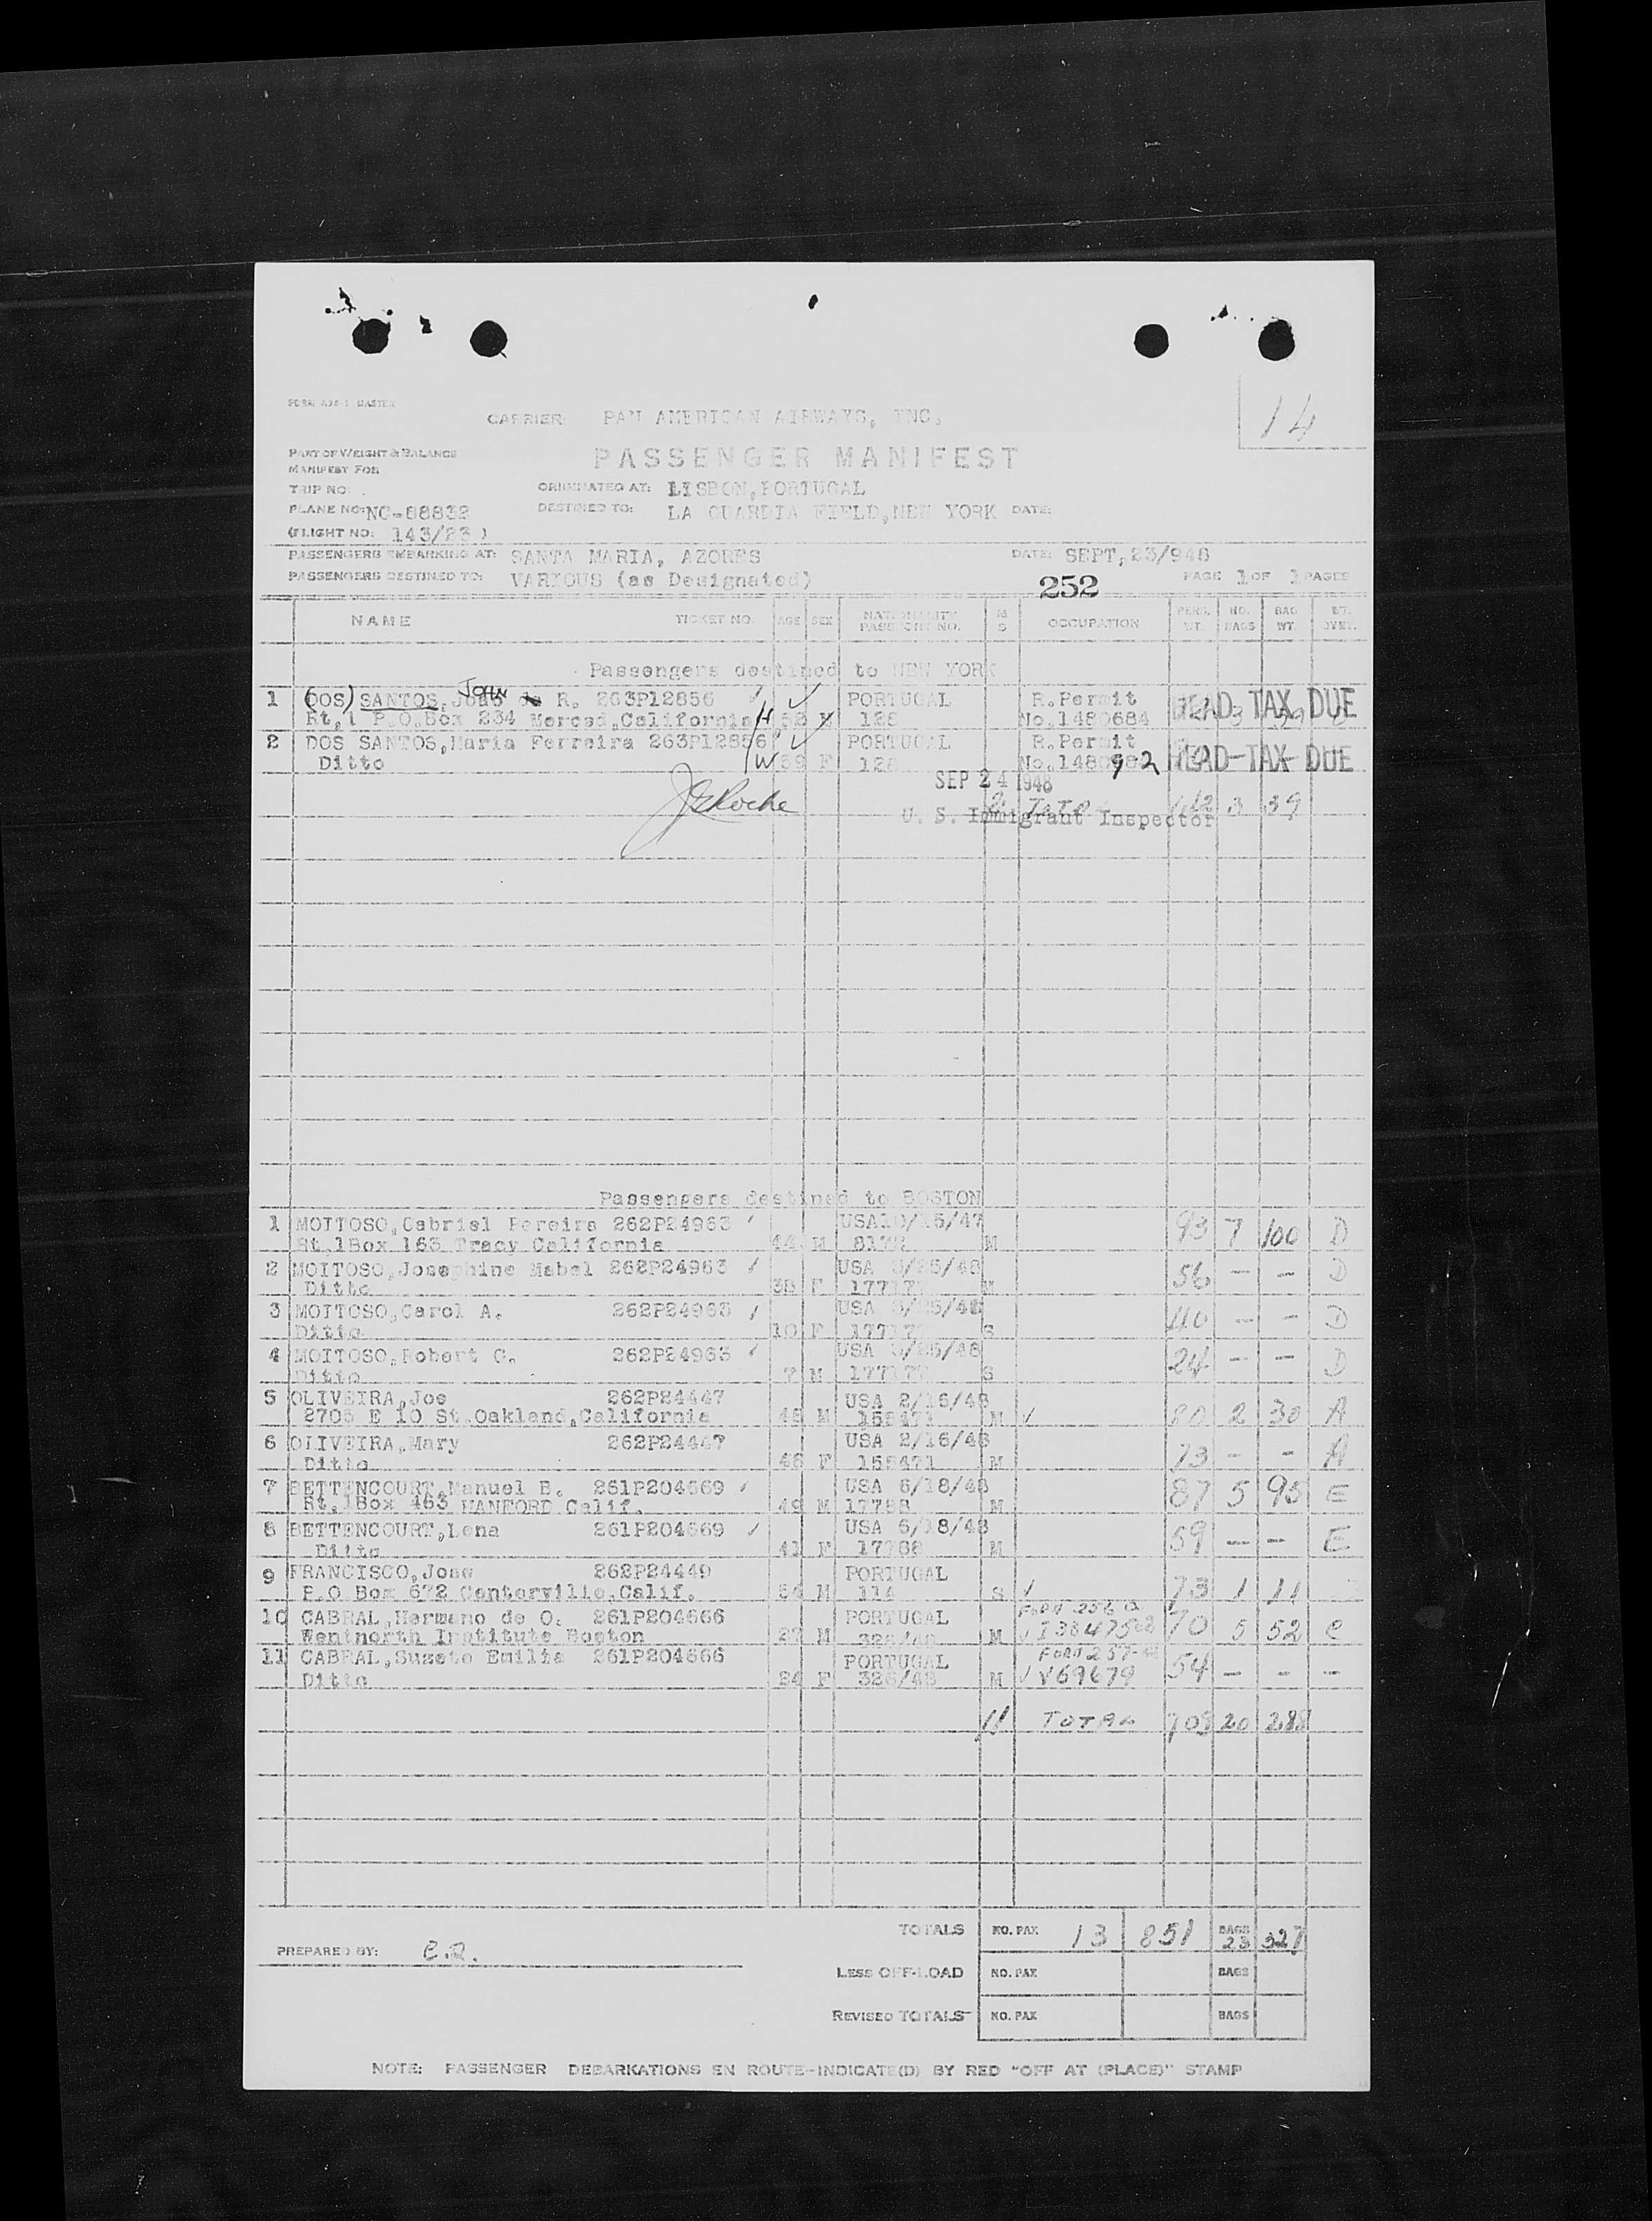 FORM 434-1 MASTER
CARRIER: PAN AMERICAN AIRWAYS, INC.
14
PART OF WEIGHT & BALANCE
MANIFEST FOR
PASSENGER MANIFEST
TRIP NO: ORIGINATED AT: LISBON, PORTUGAL
PLANE NO: NC-88832 DESTINED TO: LA GUARDIA FIELD, NEW YORK DATE:
(FLIGHT NO. 143/23)
PASSENGERS EMBARKING AT: SANTA MARIA, AZORES DATE: SEPT, 23/948
PASSENGERS DESTINED TO: VARIOUS (as Designated) 252 PAGE 1 OF 1 PAGES
NAME TICKET NO. AGE SEX NATIONALITY PASSPORT NO. M S OCCUPATION PERS. WT. NO. BAGS BAG WT.
Passengers destined to NEW YORK
John
1 (DOS) SANTOS, R. 263P12856 PORTUGAL R.Permit HEAD TAX DUE
Rt,1 P.O.Box 234 Merced,California H 128 No.1480684
2 DOS SANTOS,Maria Ferreira 263P12856 PORTUGAL R.Permit HEAD TAX DUE
Ditto W 59 F 128
SEP 24 1948
JERoche 3 39
U. S. Immigrant Inspector
Passengers destined to BOSTON
1 MOITOSO,Gabriel Pereira 262P24963 93 7 100 D
Rt,1Box 163 Tracy California 44 M M
2 MOITOSO,Josephine Mabel 262P24963 USA 56 - - D
Ditto 38 F M
3 MOITOSO,Carol A. 262P24963 USA 40 - - D
Ditto 10 F S
4 MOITOSO,Robert G. 262P24963 USA 24 - - D
Ditto 7 M S
5 OLIVEIRA,Joe 262P24447 USA 2/16/48 80 2 30 A
E 10 St.Oakland,California M M
6 OLIVEIRA,Mary 262P24447 USA 2/16/48 73 - - A
Ditto F M
7 BETTENCOURT,Manuel B. 261P204669 USA 6/18/48 87 5 95 E
Rt,1Box 463 HANFORD Calif. 49 M M
8 BETTENCOURT,Lena 261P204669 USA 6/18/48 59 - - E
Ditto 41 F M
9 FRANCISCO,Jose 262P24449 PORTUGAL 73 1 11
P.O Box 672 Centerville,Calif. 54 M 114 S
10 CABRAL,Hermano de O. 261P204666 PORTUGAL 70 5 52 C
Wentworth Institute Boston 27 M M
11 CABRAL,Suzete Emilia 261P204666 PORTUGAL 54 - - -
Ditto 24 F 326/48 M V69679
11 TOTAL 709 20 288
TOTALS NO. PAX 13 851 BAGS 23 327
PREPARED BY:
LESS OFF-LOAD NO. PAX BAGS
REVISED TOTALS NO. PAX BAGS
NOTE: PASSENGER DEBARKATIONS EN ROUTE-INDICATE(D) BY RED "OFF AT (PLACE)" STAMP